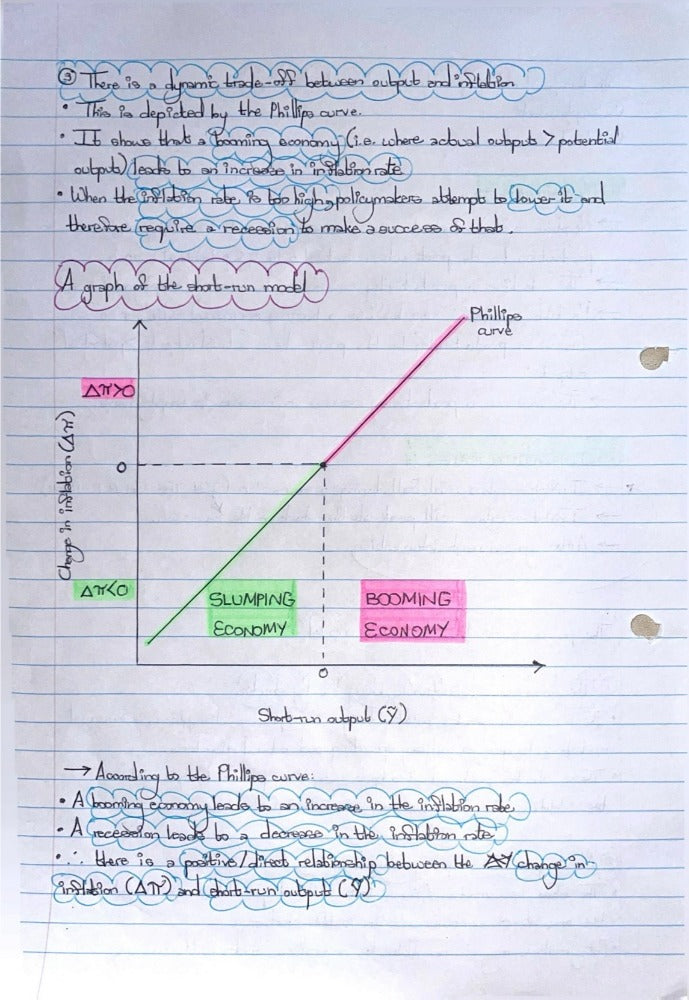 ③ There is a dynamic trade-off between output and inflation
• This is depicted by the Phillips curve.
• It shows that a booming economy (i.e. where actual outputs > potential
output) leads to an increase in inflation rate
• When the inflation rate is too high, policymakers attempt to lower it and
therefore require a recession to make a success of that.
A graph of the short-run model
Phillips
curve
Δπ>0
Change in inflation (Δπ)
0
Δπ<0
SLUMPING
ECONOMY
BOOMING
ECONOMY
0
Short-run output (Ỹ)
→ According to the Phillips curve:
• A booming economy leads to an increase in the inflation rate
• A recession leads to a decrease in the inflation rate
• ∴ there is a positive/direct relationship between the change in
inflation (Δπ) and short-run output (Ỹ)